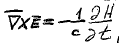 ∇̅×E̅ = -1/c ∂H̅/∂t,